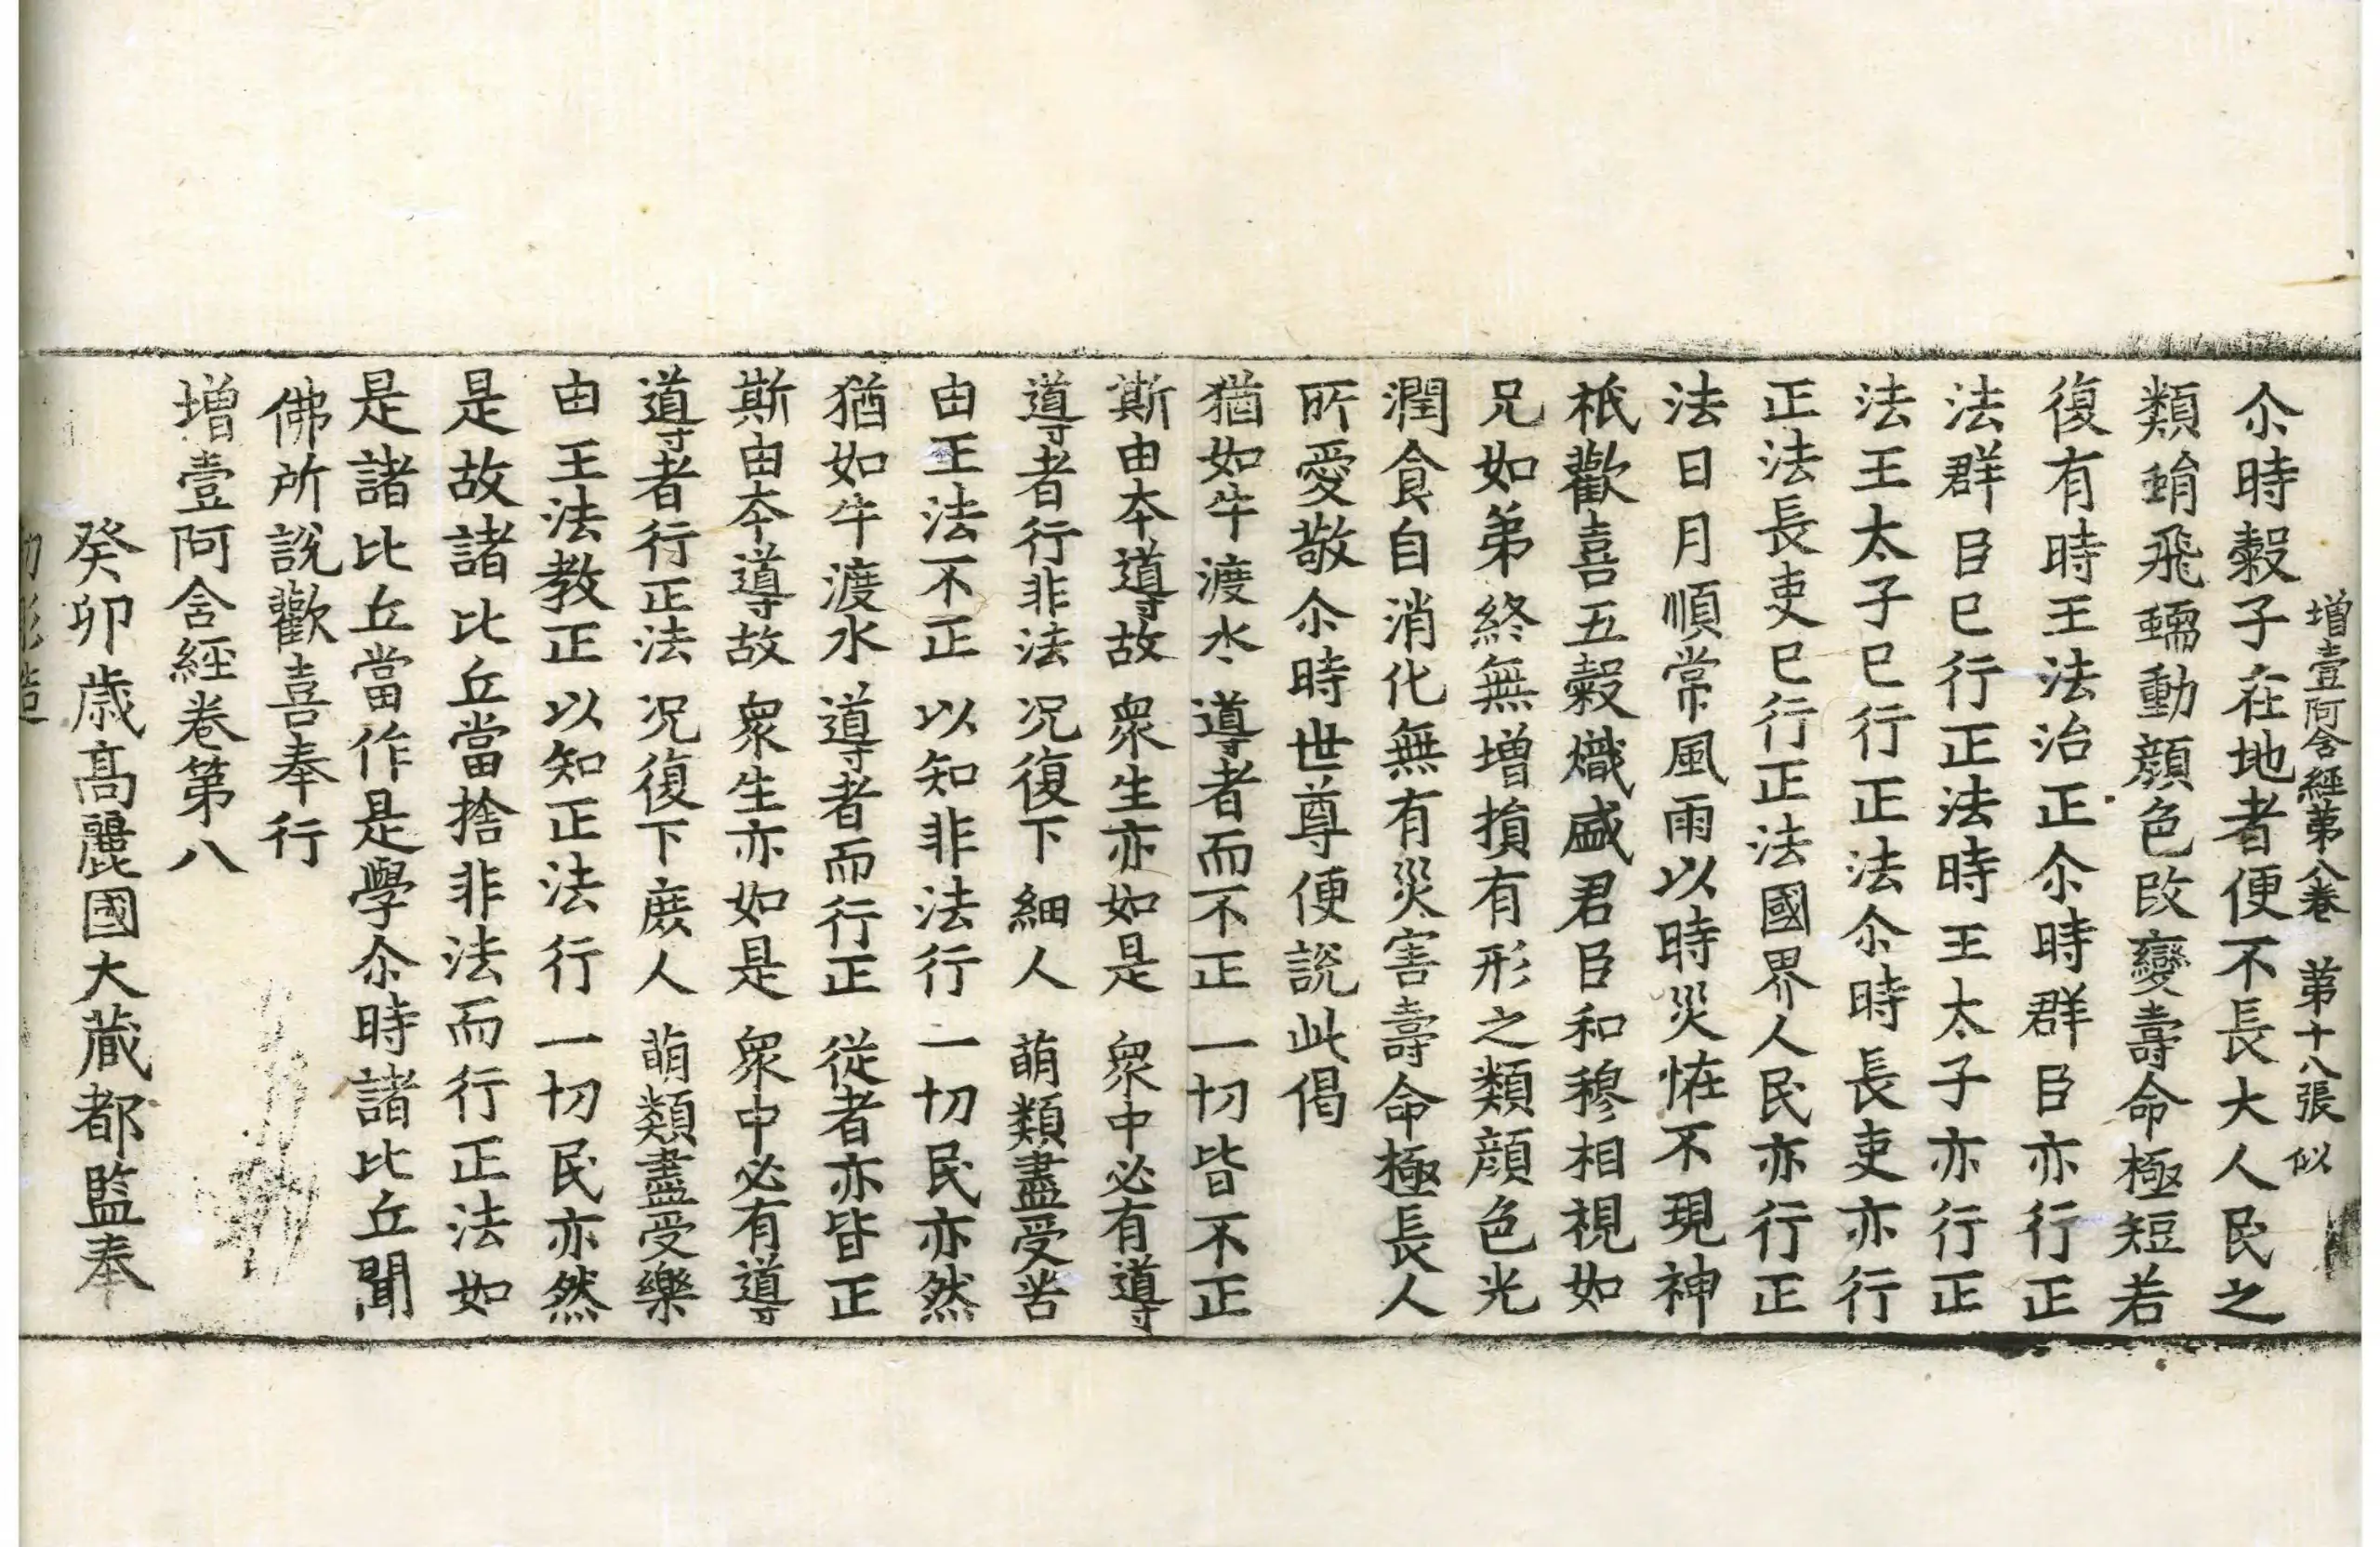 增壹阿含經第八卷 第十八張 似
尒時穀子在地者便不長大人民之
類蜎飛蠕動顔色改變壽命極短若
復有時王法治正尒時群臣亦行正
法群臣已行正法時王太子亦行正
法王太子已行正法尒時長吏亦行
正法長吏已行正法國界人民亦行正
法日月順常風雨以時災恠不現神
祇歡喜五穀熾盛君臣和穆相視如
兄如弟終無增損有形之類顔色光
潤食自消化無有災害壽命極長人
所愛敬尒時世尊便說此偈
猶如牛渡水 導者而不正 一切皆不正
斯由本導故 衆生亦如是 衆中必有導
導者行非法 況復下細人 萌類盡受苦
由王法不正 以知非法行 一切民亦然
猶如牛渡水 導者而行正 從者亦皆正
斯由本導故 衆生亦如是 衆中必有導
導者行正法 況復下庶人 萌類盡受樂
由王法教正 以知正法行 一切民亦然
是故諸比丘當捨非法而行正法如
是諸比丘當作是學尒時諸比丘聞
佛所說歡喜奉行
增壹阿含經卷第八
癸卯歳高麗國大藏都監奉